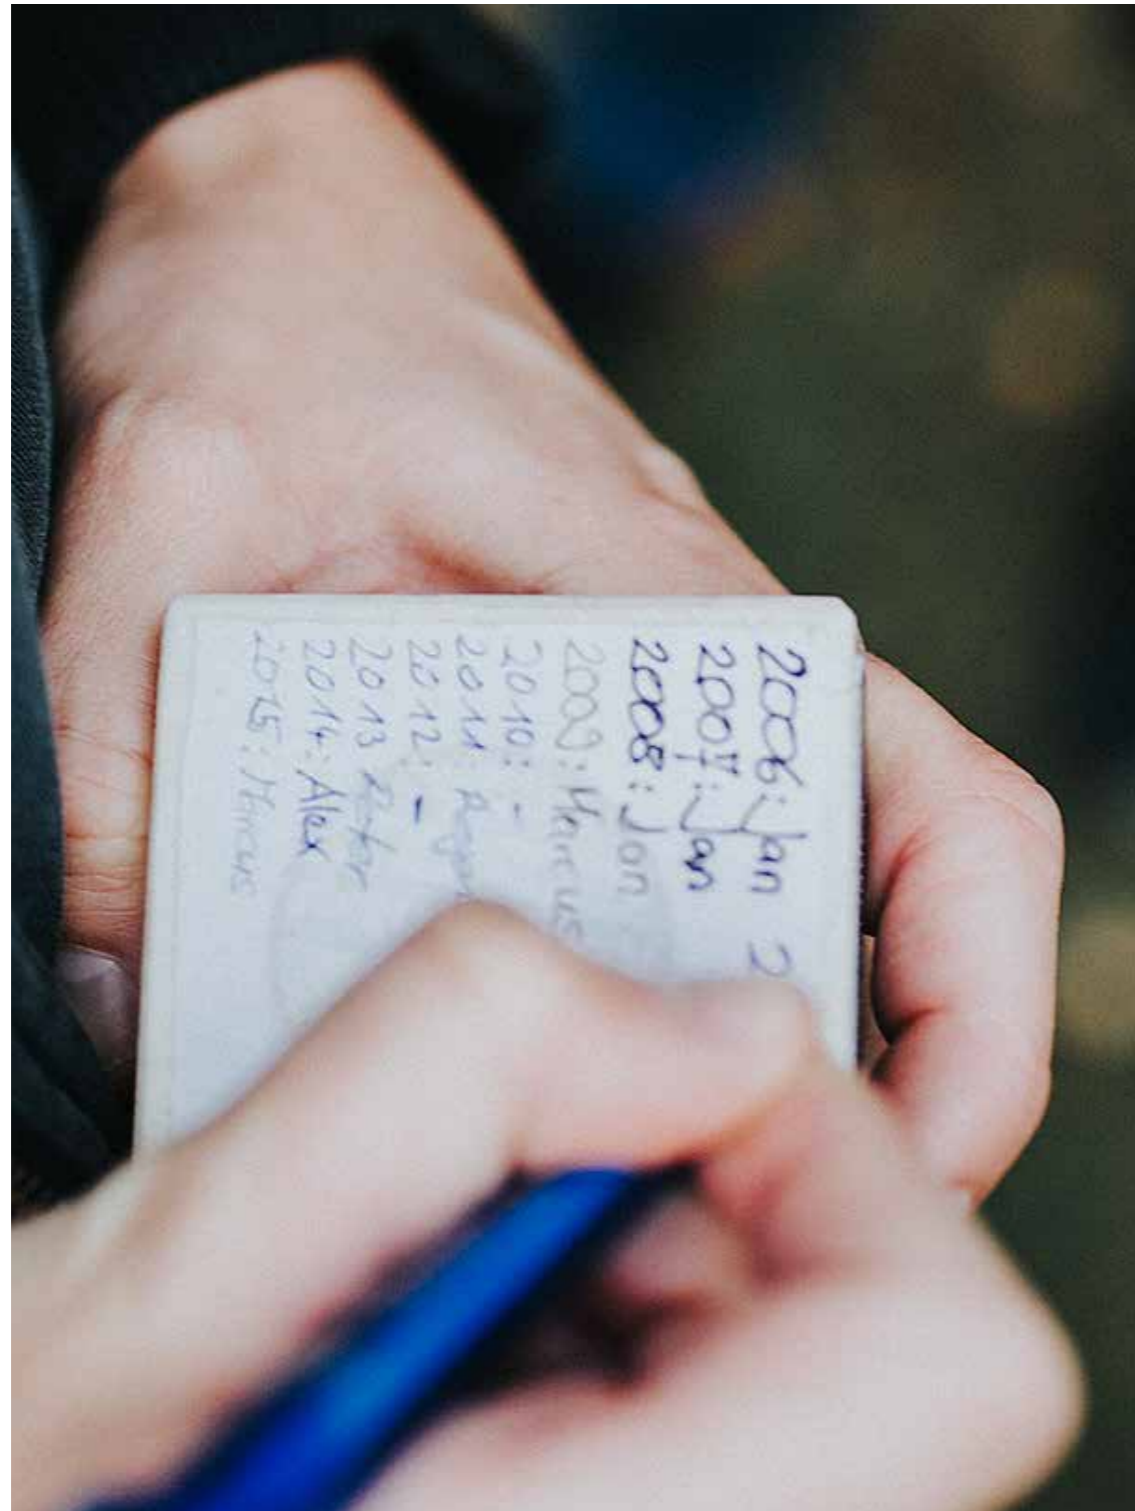 2006: Jan 2
2007: Jan
2008: Jan
2009: Marcus
2010: -
2011:
2012: -
2013
2014: Alex
2015: Marcus